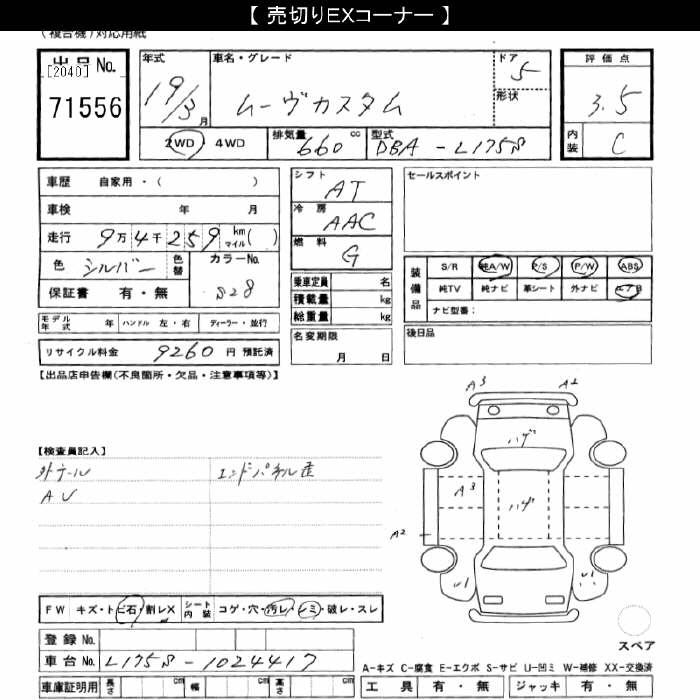 【 売切りEXコーナー 】
(複合機)対応用紙
出品 No.
[2040]
71556
年式
19/3 月
車名・グレード
ムーヴカスタム
ドア
5
形状
評価点
3.5
内装 C
2WD ・ 4WD
排気量 660 cc
型式 DBA - L175S
車歴 自家用・( )
車検 年 月
走行 9万4千259 km マイル( )
色 シルバー 色替 カラーNo. S28
保証書 有・無
シフト AT
冷房 AAC
燃料 G
乗車定員 名
積載量 kg
総重量 kg
セールスポイント
装備品
S/R 純A/W P/S P/W ABS
純TV 純ナビ 革シート 外ナビ エアB
ナビ型番:
モデル年式 年 ハンドル 左・右 ディーラー・並行
リサイクル料金 9260 円 預託済
名変期限
月 日
後日品
【出品店申告欄(不良箇所・欠品・注意事項等)】
A3 A2
ハゲ
【検査員記入】
外テール エンドパネル歪
AV
A3
ハゲ
A2
FW キズ・トビ石・割レX シート内装 コゲ・穴・汚レ・シミ・破レ・スレ
登録 No.
車台 No. L175S-1024417
スペア
A-キズ C-腐食 E-エクボ S-サビ U-凹ミ W-補修 XX-交換済
車庫証明用 長さ cm 幅 cm 高さ cm
工具 有・無 ジャッキ 有・無